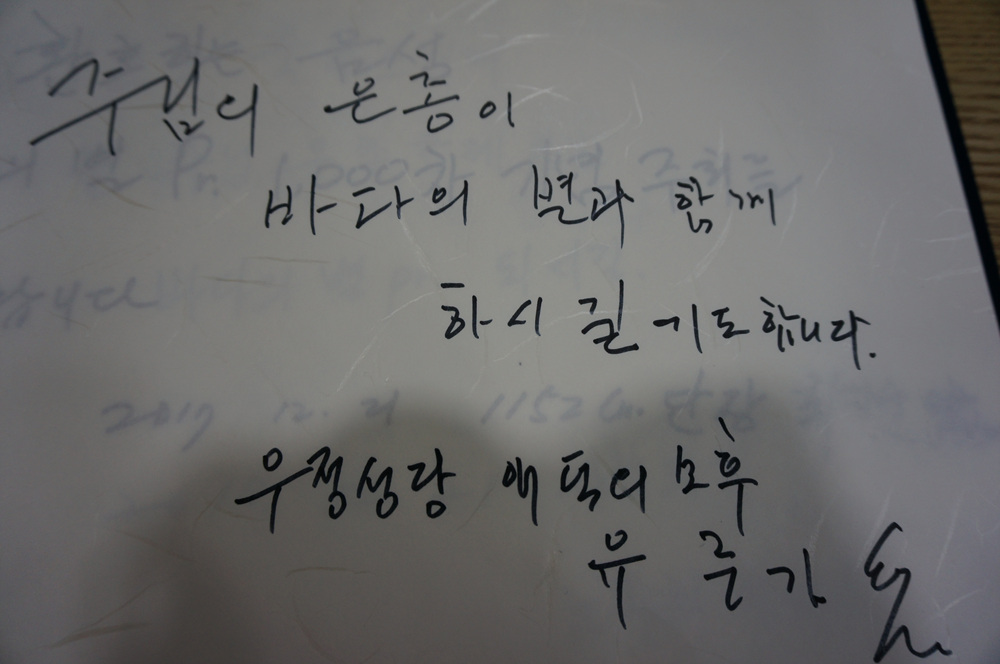 주님의 은총이
바다의 별과 함께
하시길 기도합니다.
우정성당 애덕의 모후
유 루가